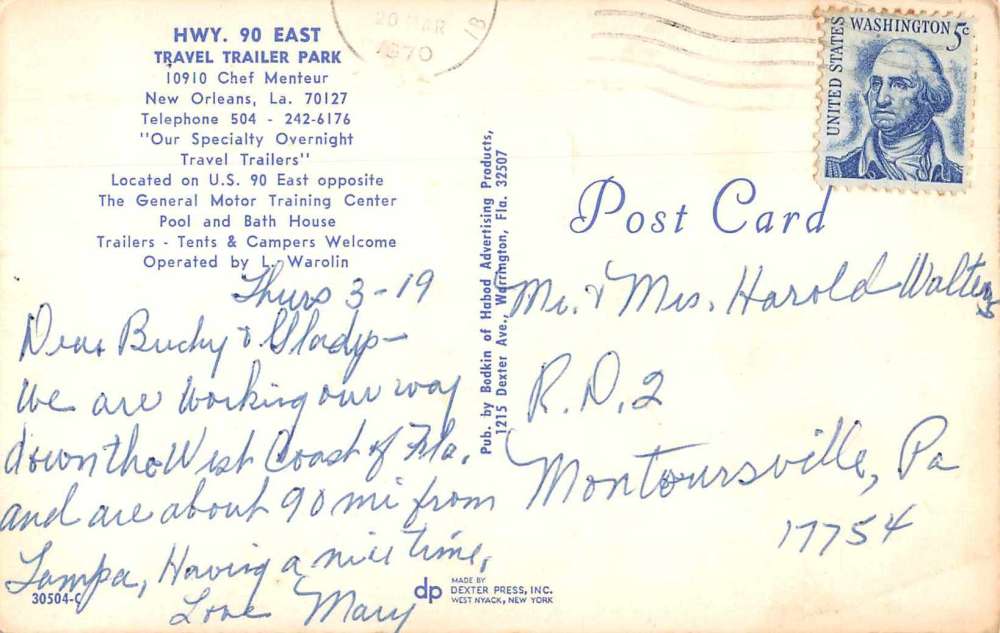 HWY. 90 EAST
TRAVEL TRAILER PARK
10910 Chef Menteur
New Orleans, La. 70127
Telephone 504 - 242-6176
"Our Specialty Overnight
Travel Trailers"
Located on U.S. 90 East opposite
The General Motor Training Center
Pool and Bath House
Trailers - Tents & Campers Welcome
Operated by L. Warolin
Thurs 3-19
Dear Buchy & Gladys-
We are working our way
down the West Coast of Fla.
and are about 90 mi from
Tampa, Having a nice time,
Love Mary
30504-C
Pub. by Bodkin of Habod Advertising Products,
1215 Dexter Ave., Warrington, Fla. 32507
dp
MADE BY
DEXTER PRESS, INC.
WEST NYACK, NEW YORK
20 MAR
1970
UNITED STATES
WASHINGTON 5c
Post Card
Mr. & Mrs. Harold Walters
R.D.2
Montoursville, Pa
17754